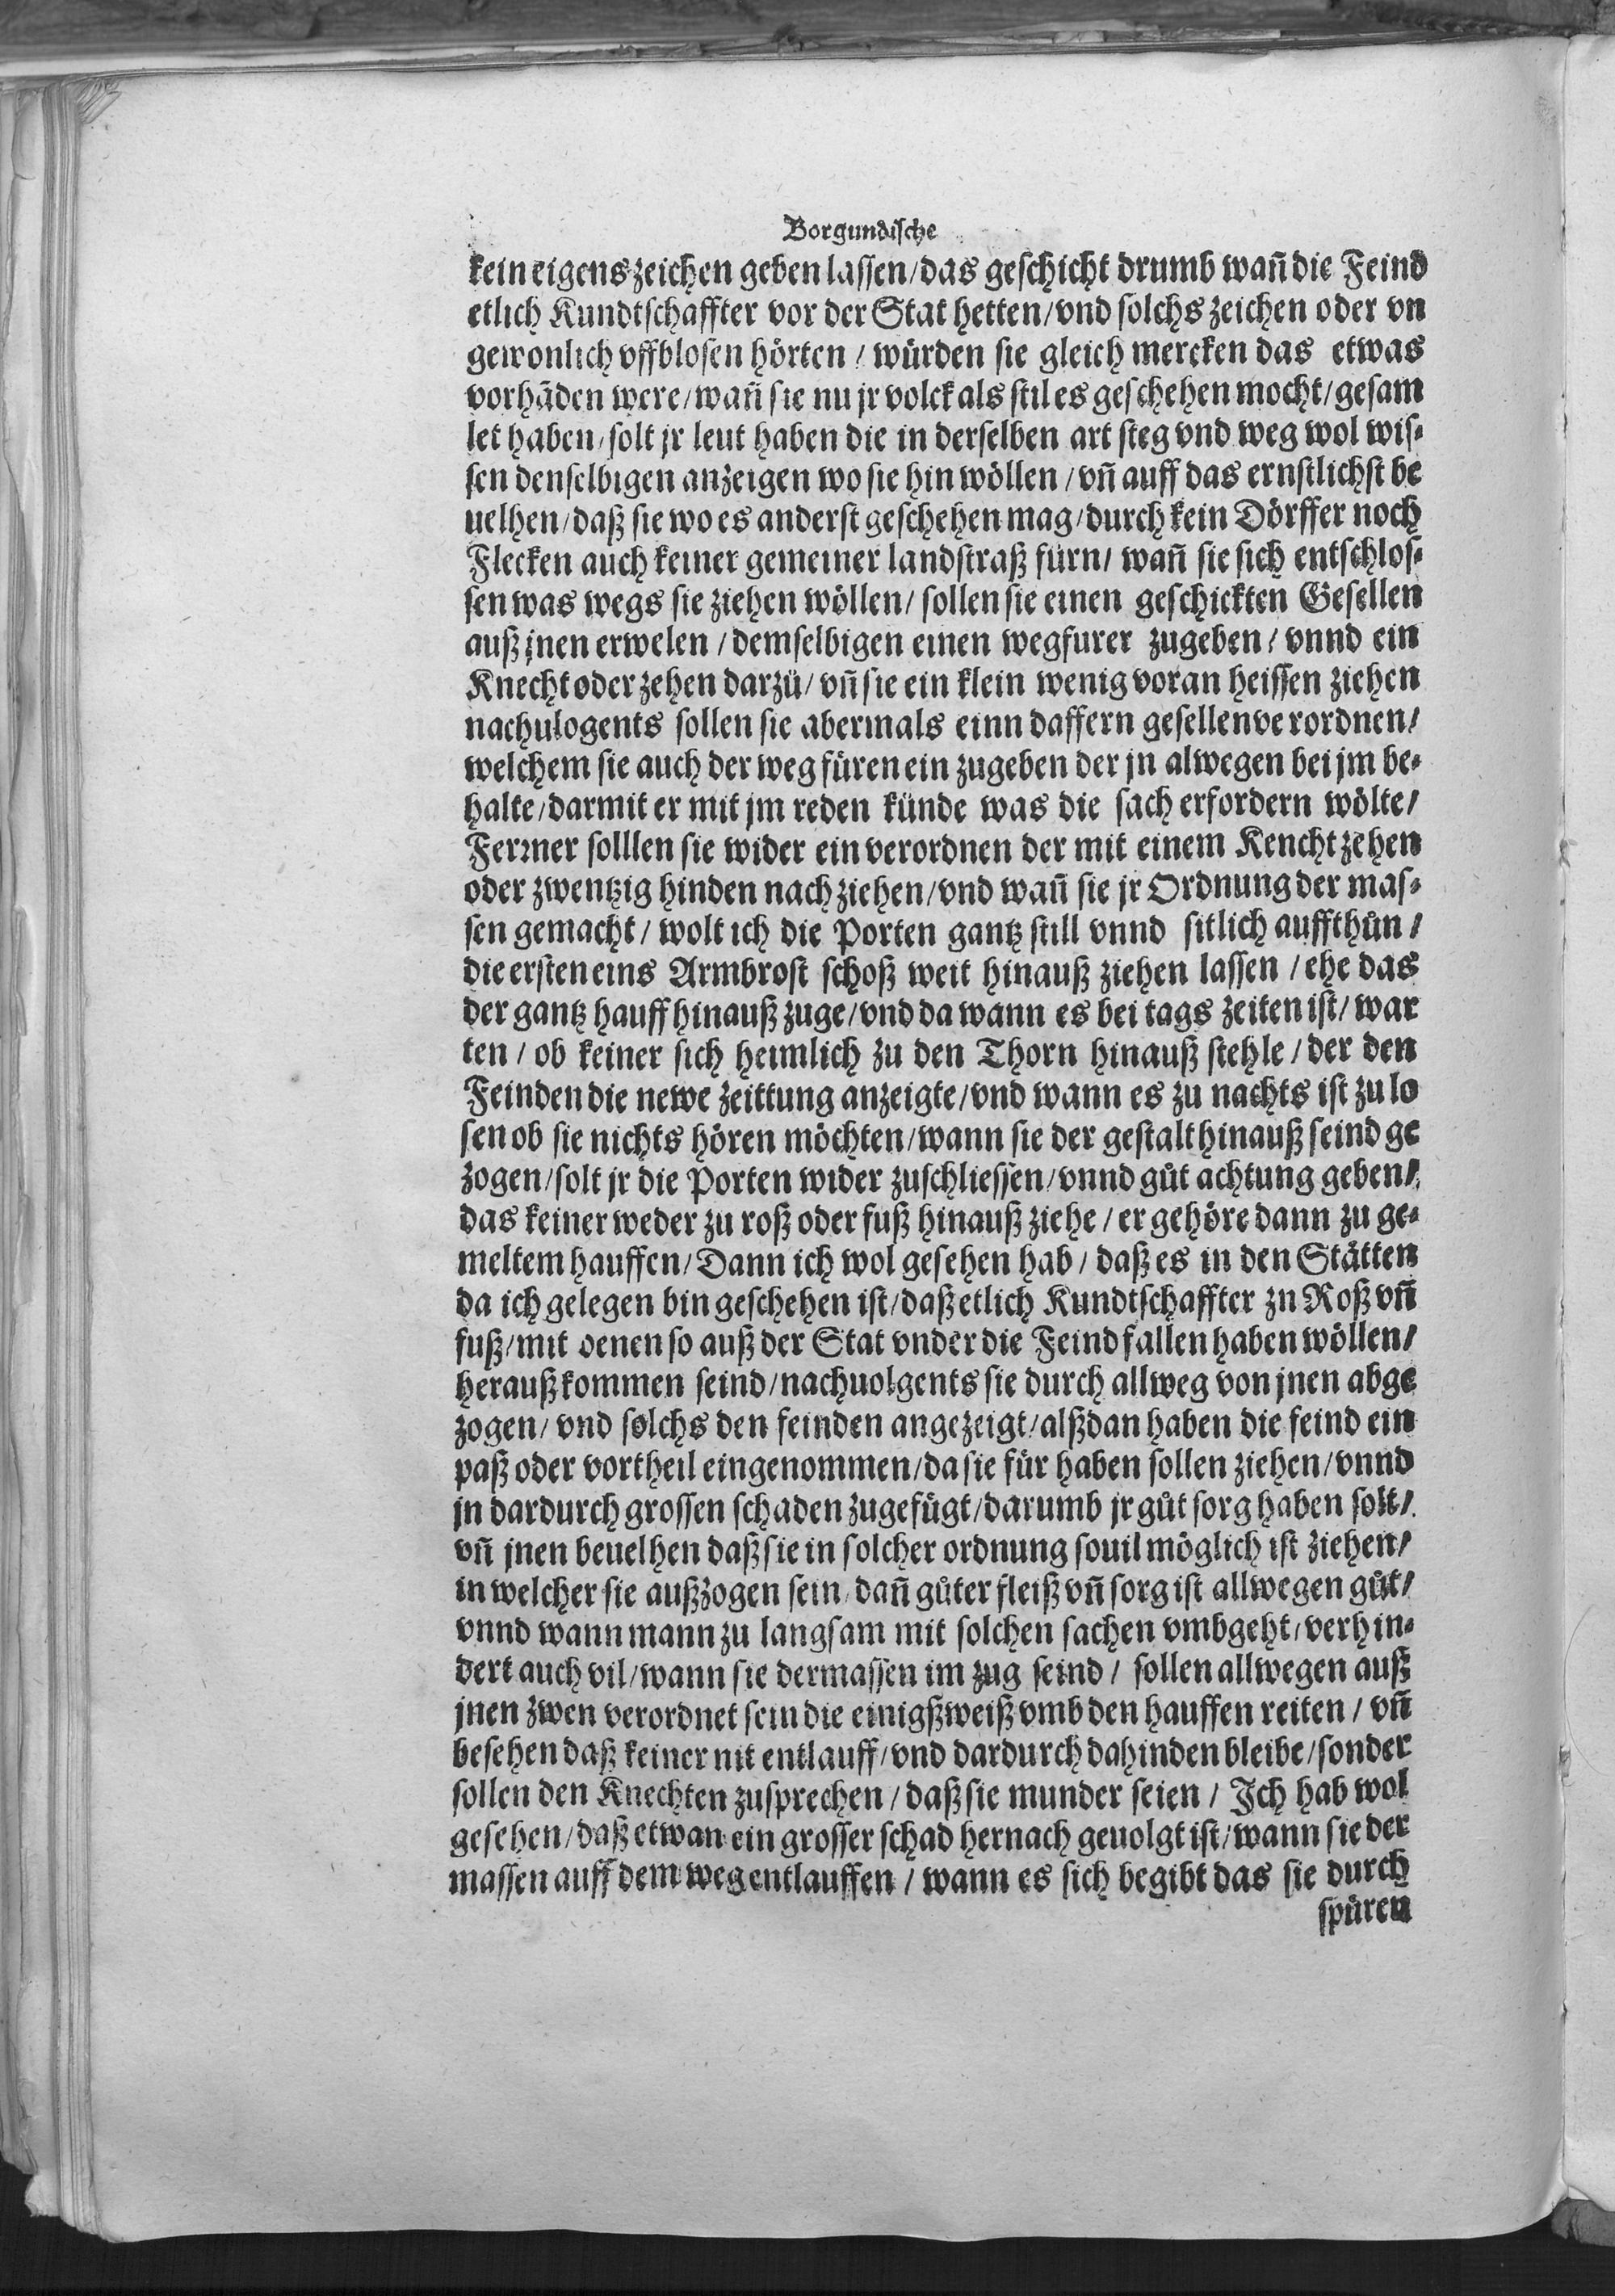 Borgundische
kein eigens zeichen geben lassen/das geschicht drumb wañ die Feind
etlich Kundtschaffter vor der Stat hetten/vnd solchs zeichen oder vn
gewonlich vffblosen hörten / würden sie gleich mercken das etwas
vorhãden were/wañ sie nu jr volck als stil es geschehen mocht/gesam
let haben/solt jr leut haben die in derselben art steg vnd weg wol wis⸗
sen denselbigen anzeigen wo sie hin wöllen/vñ auff das ernstlichst be
uelhen/daß sie wo es anderst geschehen mag/durch kein Dörffer noch
Flecken auch keiner gemeiner landstraß fürn/ wañ sie sich entschlos⸗
sen was wegs sie ziehen wöllen/ sollen sie einen geschickten Gesellen
auß jnen erwelen / demselbigen einen wegfurer zugeben/ vnnd ein
Knecht oder zehen darzü/ vñ sie ein klein wenig voran heissen ziehen
nachulogents sollen sie abermals einn daffern gesellen verordnen/
welchem sie auch der weg füren ein zugeben der jn alwegen bei jm be⸗
halte/darmit er mit jm reden künde was die sach erfordern wölte/
Ferrner solllen sie wider ein verordnen der mit einem Kencht zehen
oder zwentzig hinden nach ziehen/vnd wañ sie jr Ordnung der mas⸗
sen gemacht/ wolt ich die Porten gantz still vnnd sitlich auffthůn/
die ersten eins Armbrost schoß weit hinauß ziehen lassen / ehe das
der gantz hauff hinauß zuge/vnd da wann es bei tags zeiten ist/ war
ten / ob keiner sich heimlich zu den Thorn hinauß stehle / der den
Feinden die newe zeittung anzeigte/vnd wann es zu nachts ist zu lo
sen ob sie nichts hören möchten/wann sie der gestalt hinauß seind ge
zogen/solt jr die Porten wider zuschliessen/vnnd gůt achtung geben/
das keiner weder zu roß oder fuß hinauß ziehe / er gehöre dann zu ge⸗
meltem hauffen/Dann ich wol gesehen hab / daß es in den Stätten
da ich gelegen bin geschehen ist/daß etlich Kundtschaffter zn Roß vñ
fuß/mit denen so auß der Stat vnder die Feind fallen haben wöllen/
herauß kommen seind/nachuolgents sie durch allweg von jnen abge
zogen/ vnd solchs den feinden angezeigt/alßdan haben die feind ein
paß oder vortheil eingenommen/da sie für haben sollen ziehen/vnnd
jn dardurch grossen schaden zugefügt/darumb jr gůt sorg haben solt/
vñ jnen beuelhen daß sie in solcher ordnung souil möglich ist ziehen/
in welcher sie außzogen sein/dañ gůter fleiß vñ sorg ist allwegen gůt/
vnnd wann mann zu langsam mit solchen sachen vmbgeht/verhin⸗
dert auch vil/wann sie dermassen im zug seind/ sollen allwegen auß
jnen zwen verordnet sein die einigßweiß vmb den hauffen reiten / vñ
besehen daß keiner nit entlauff/vnd dardurch dahinden bleibe/sonder
sollen den Knechten zusprechen/daß sie munder seien / Ich hab wol
gesehen/daß etwan ein grosser schad hernach geuolgt ist/wann sie der
massen auff dem weg entlauffen / wann es sich begibt das sie durch
spüren